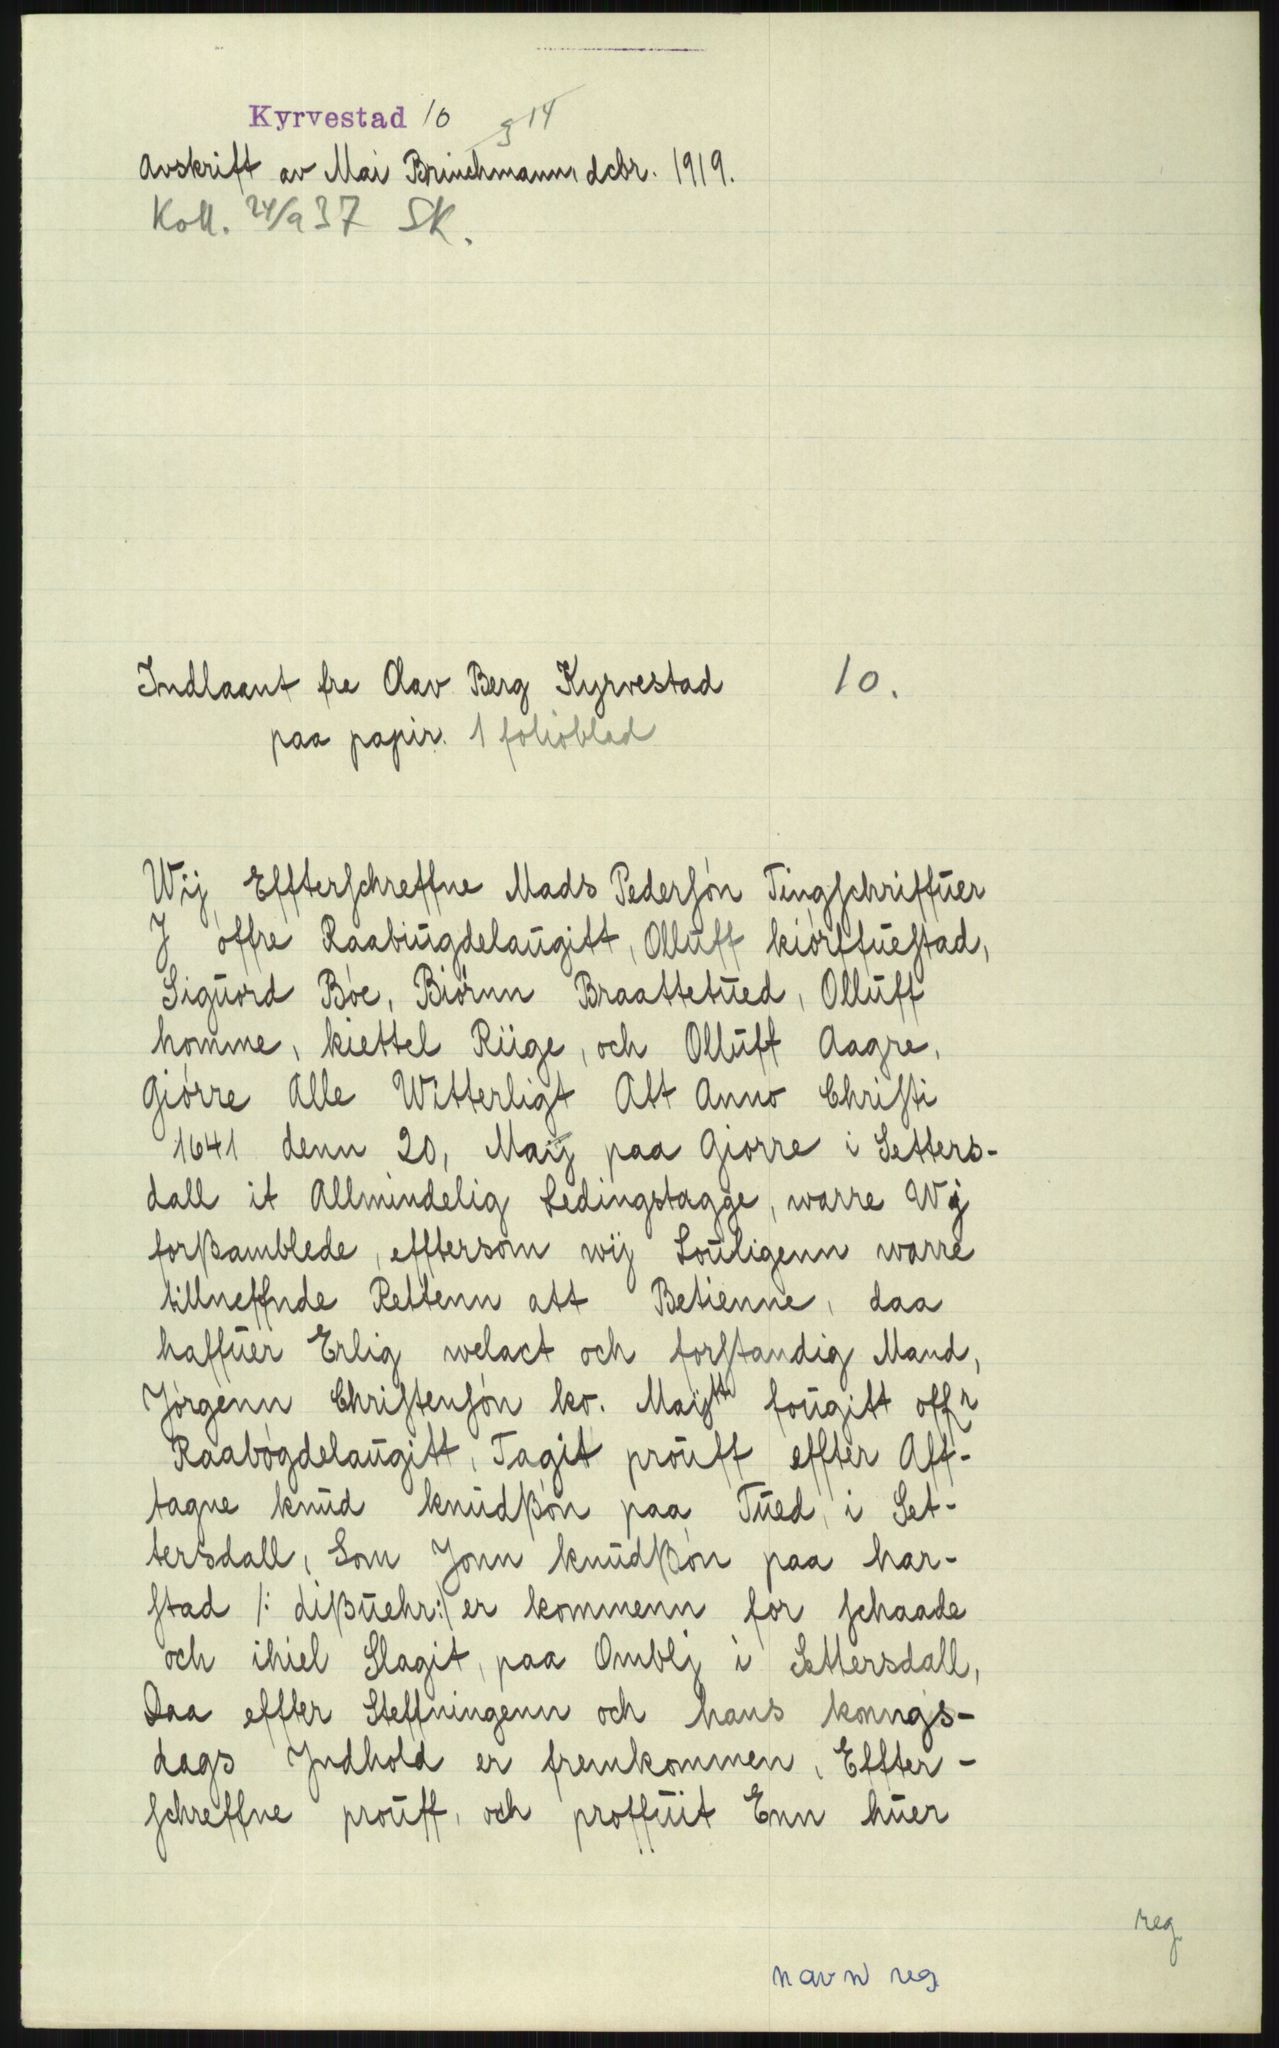 Kyrvestad 10 g 14
Avskrift av Mai Brinchmann, dcbr. 1919.
Koll. 24/9 37 SK.
Indlaant fra Olav Berg Kyrvestad 10.
paa papir. 1 folioblad
Wij Effterschreffne Mads Pedersón Tingschriffuer
J óffre Raabiugdelaugitt, Olluff kiórffuestad,
Siguord Bóe, Biórnn Braattetued, Olluff
homme, kiettel Riige, och Olluff Aagre,
Giórre Alle Witterligt Att Anno Christi
1641 denn 20, Maij paa Giorre i Setters-
dall it Allmindelig Ledingstagge, warre Wij
forßamblede, efftersom wij Louligenn warre
tillneffnde Rettenn att Betienne, daa
haffuer Erlig welact och forstandig Mand,
Jórgenn Christensón ko. Maijtt fougitt offr
Raabógdelaugitt, Tagit prouff effter Aff-
tagne knud knudßón paa Tued, i Set-
tersdall, Som Jonn knudßón paa har-
stad /: dißuehr:/ er kommenn for schaade
och ihiel Slagit, paa Omblj i Settersdall,
Daa effter Steffningenn och hans konngs-
dags Jndhold er fremkommen, Effter-
schreffne prouff, och proffuit Enn huer
reg
navn reg